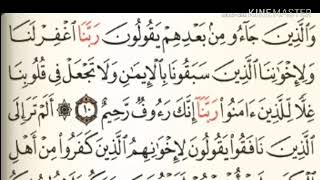 KINEMASTER
وَٱلَّذِينَ جَآءُو مِنۢ بَعْدِهِمْ يَقُولُونَ رَبَّنَا ٱغْفِرْ لَنَا
وَلِإِخْوَٰنِنَا ٱلَّذِينَ سَبَقُونَا بِٱلْإِيمَٰنِ وَلَا تَجْعَلْ فِى قُلُوبِنَا
غِلًّا لِّلَّذِينَ ءَامَنُوا۟ رَبَّنَآ إِنَّكَ رَءُوفٌ رَّحِيمٌ ١٠ ۞ أَلَمْ تَرَ إِلَى
ٱلَّذِينَ نَافَقُوا۟ يَقُولُونَ لِإِخْوَٰنِهِمُ ٱلَّذِينَ كَفَرُوا۟ مِنْ أَهْلِ